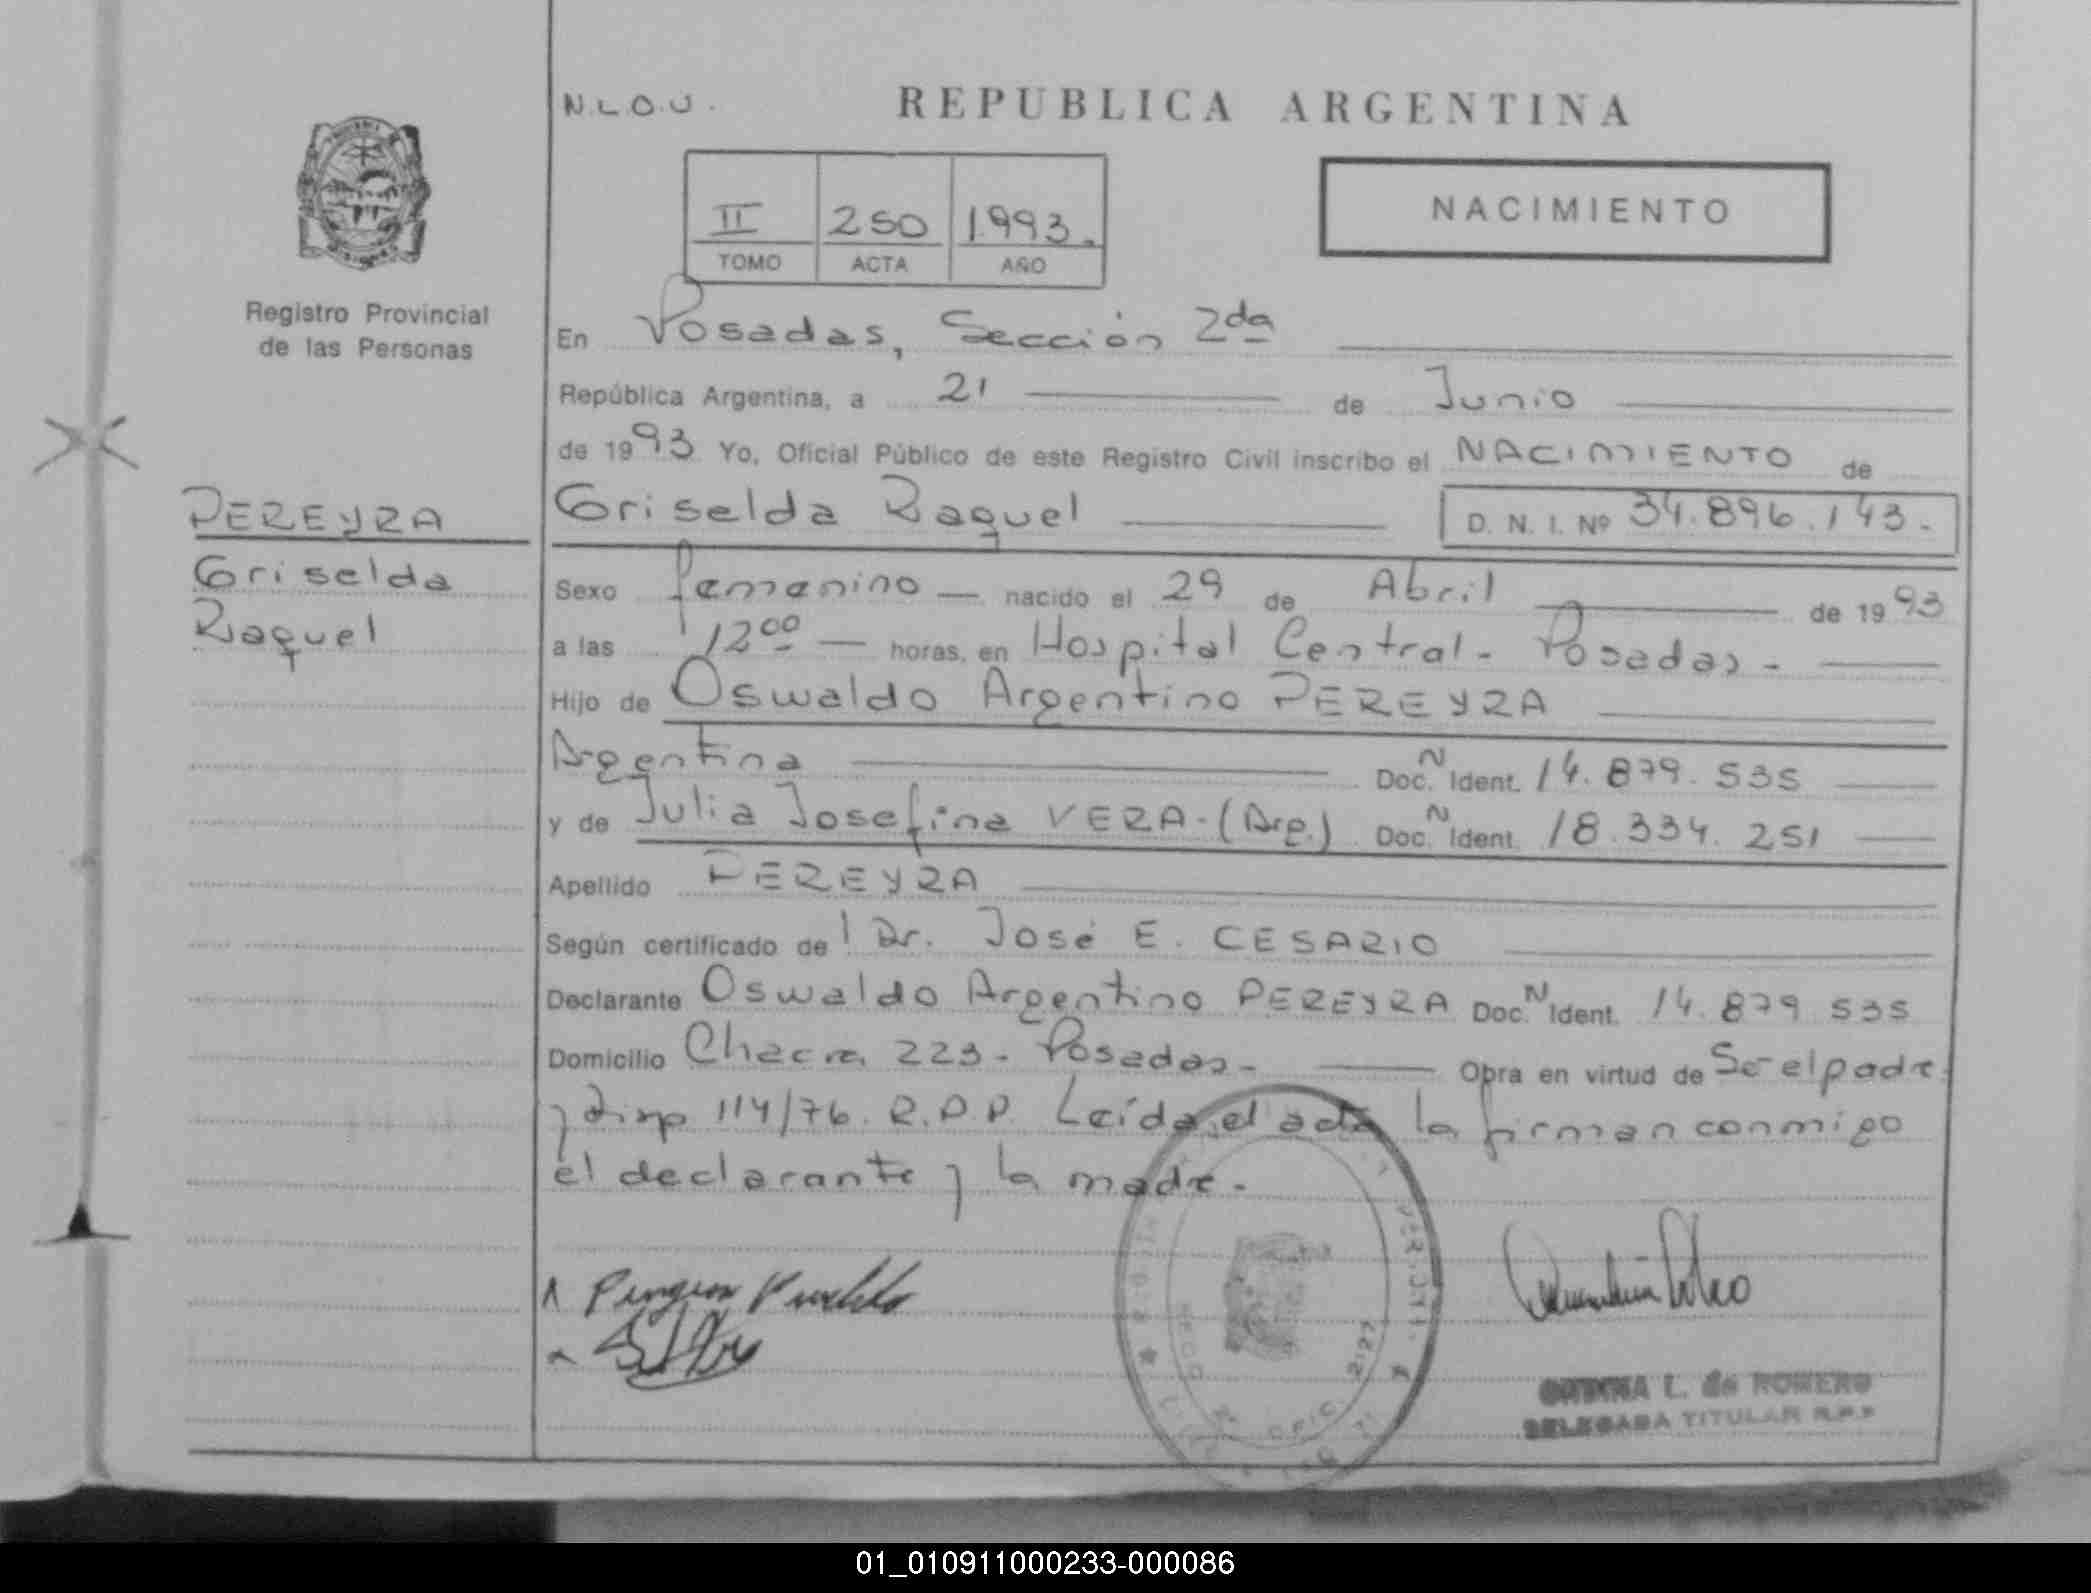 N.L.O.U.
REPUBLICA ARGENTINA
II 250 1993.
TOMO ACTA AÑO
NACIMIENTO
Registro Provincial
de las Personas
En Posadas, Sección 2da
República Argentina, a 21 de Junio
de 1993 Yo, Oficial Público de este Registro Civil inscribo el NACIMIENTO de
PEREYRA
Griselda Raquel D. N. I. Nº 34.896.143.
Griselda
Raquel
Sexo femenino nacido el 29 de Abril de 1993
a las 12 00 horas, en Hospital Central - Posadas -
Hijo de Oswaldo Argentino PEREYRA
Argentina Doc. N Ident. 14.879.535
y de Julia Josefina VERA - (Arg.) Doc. N Ident. 18.334.251
Apellido PEREYRA
Según certificado de l Dr. José E. CESARIO
Declarante Oswaldo Argentino PEREYRA Doc. N Ident. 14.879.535
Domicilio Chacra 223 - Posadas - Obra en virtud de Ser el padre
y Disp 114/76. R.P.P. Leída el acta la firman conmigo
el declarante y la madre -
L. de ROMERO
DELEGADA TITULAR R.P.P
01_010911000233-000086